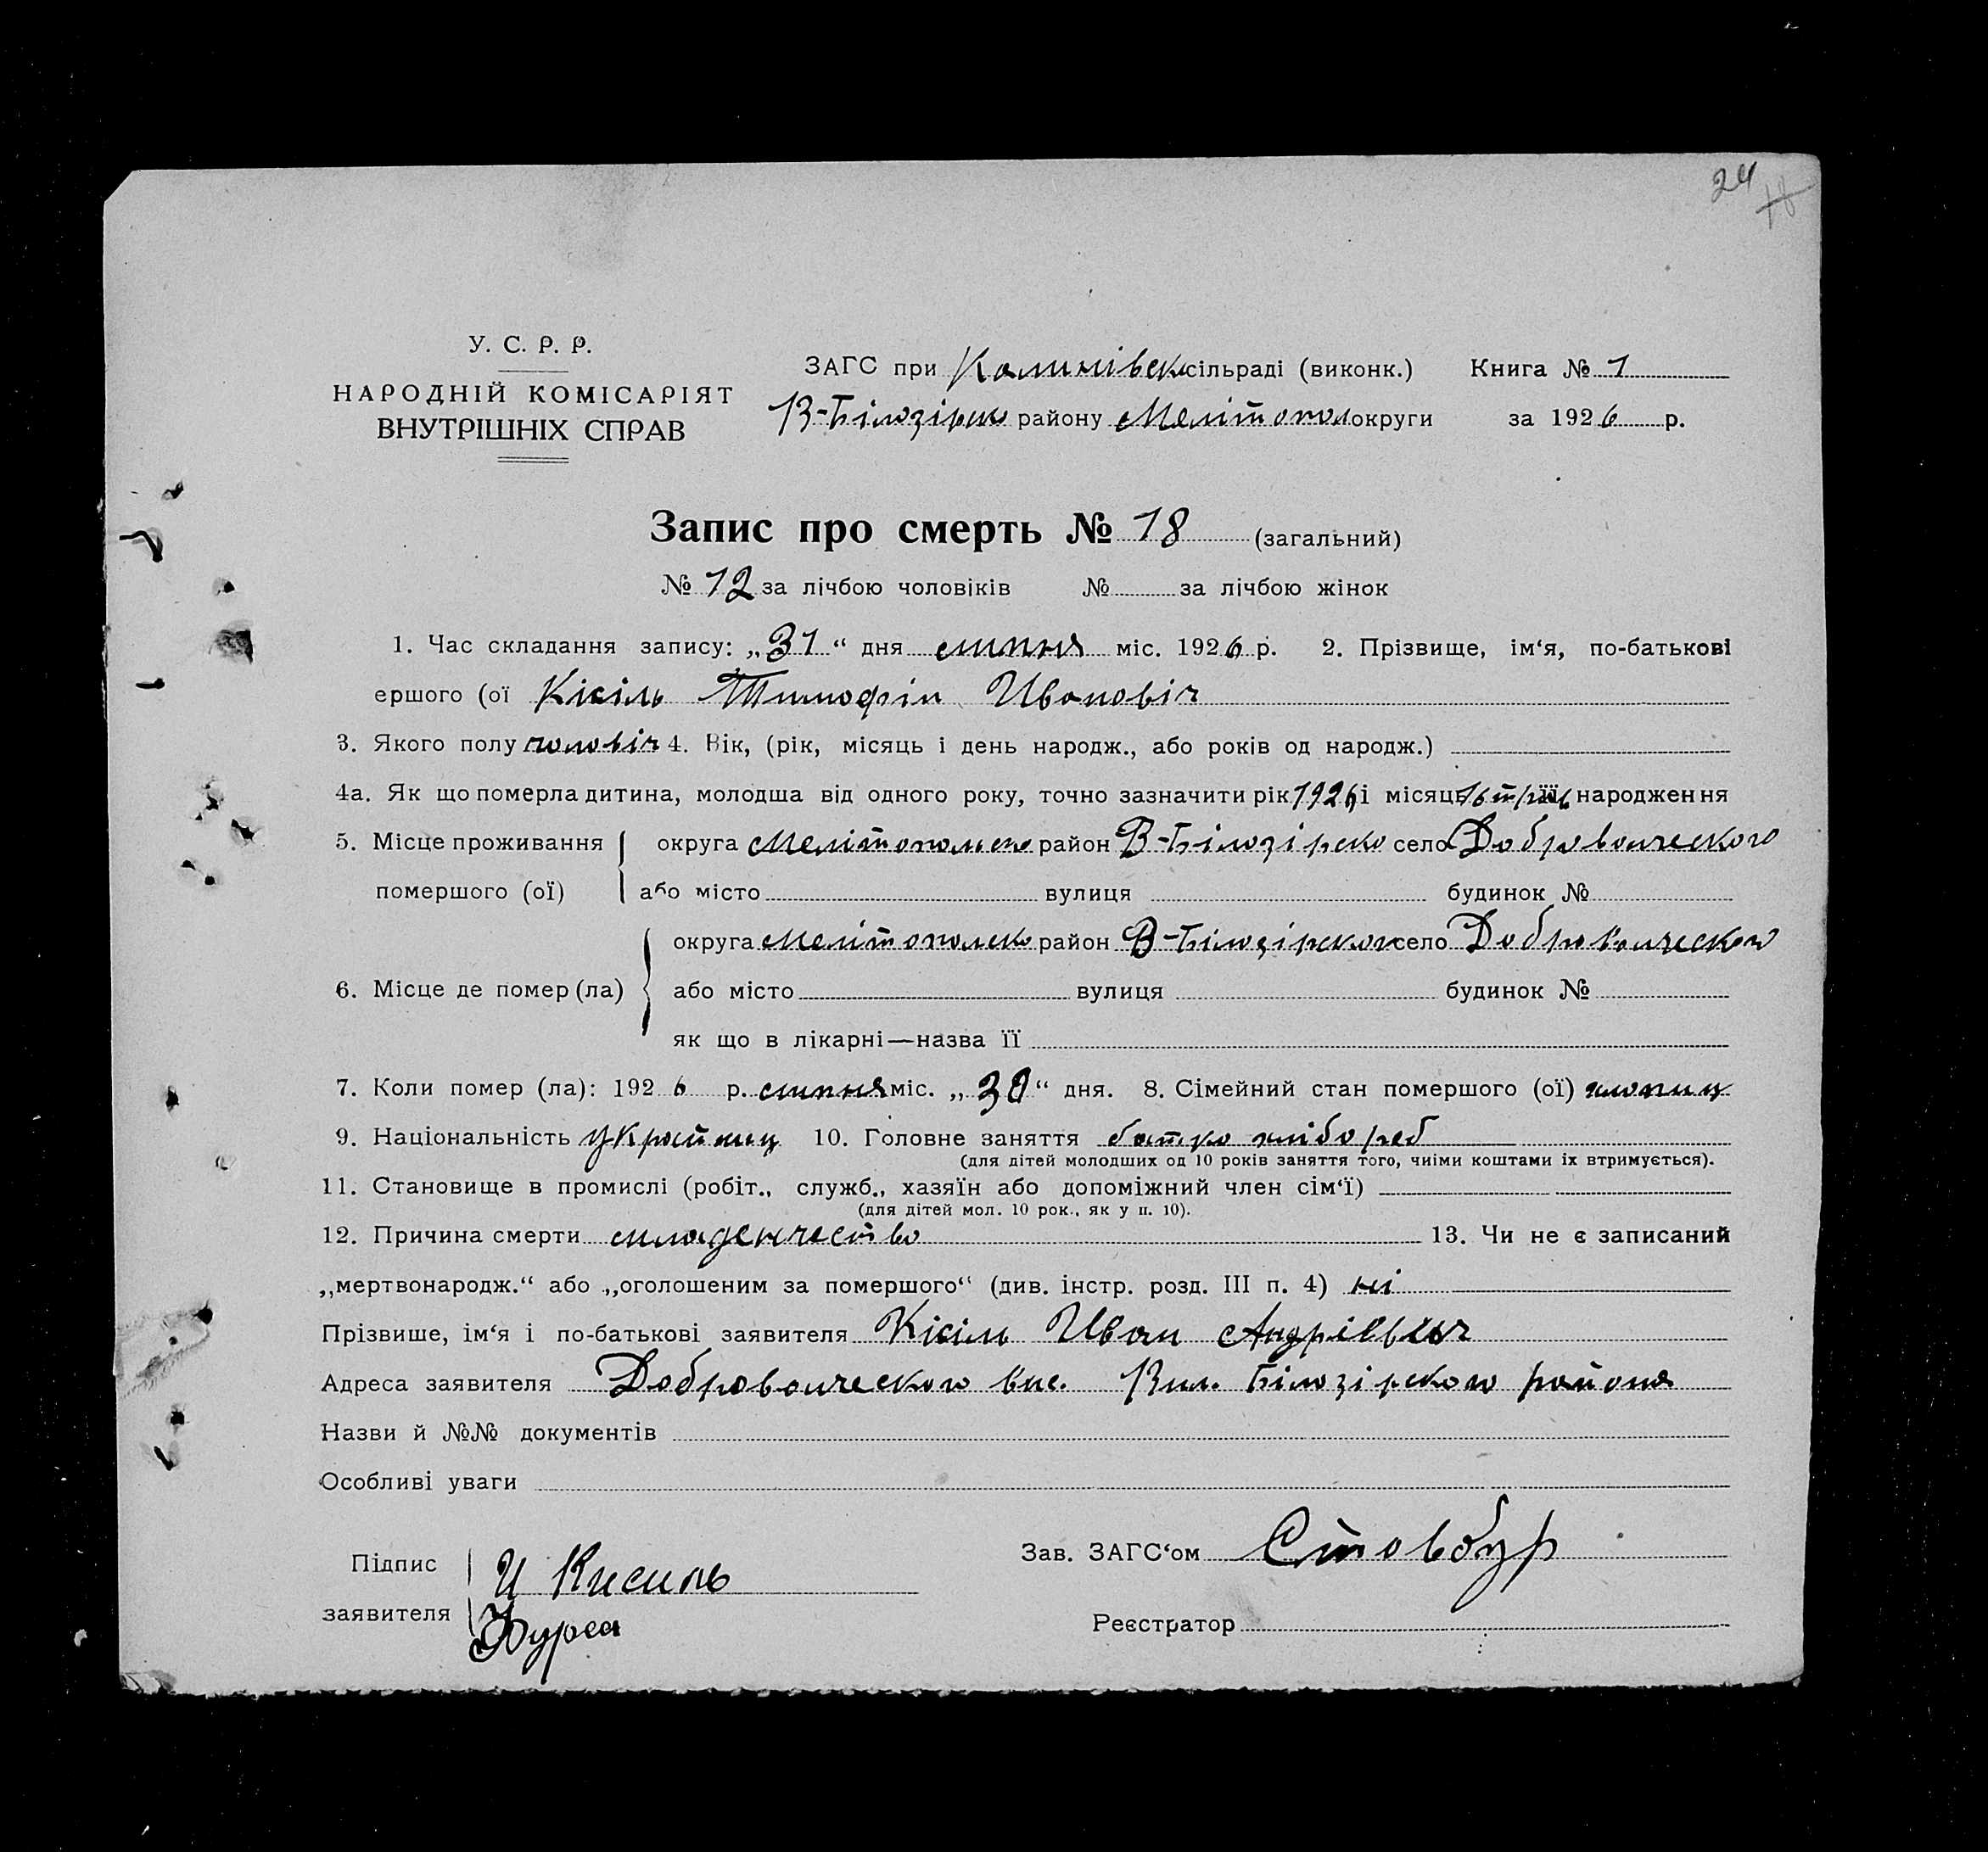 24
18
У. С. Р. Р.
НАРОДНІЙ КОМІСАРІЯТ
ВНУТРІШНІХ СПРАВ
ЗАГС при Калинівск сільраді (виконк.) Книга № 1
В-Білозірько району Мелітопол округи за 1926 р.
Запис про смерть № 18 (загальний)
№ 12 за лічбою чоловіків № за лічбою жінок
1. Час складання запису: „31“ дня липня міс. 1926 р. 2. Прізвище, ім‘я, по-батькові
ершого (ої Кісіль Тимофій Ивановіч
3. Якого полу чоловіч 4. Вік, (рік, місяць і день народж., або років од народж.)
4а. Як що померла дитина, молодша від одного року, точно зазначити рік 1926 і місяць народження
5. Місце проживання округа Мелітопольско район В-Білозірско село Добровольческого
помершого (ої) або місто вулиця будинок №
округа Мелітопольско район В-Білозірского село Добровольческого
6. Місце де помер (ла) або місто вулиця будинок №
як що в лікарні—назва її
7. Коли помер (ла): 1926 р. липня міс. „30“ дня. 8. Сімейний стан помершого (ої) хлопиц
9. Національність Украйниц 10. Головне заняття батько хлібороб
(для дітей молодших од 10 років заняття того, чиїми коштами їх втримується).
11. Становище в промислі (робіт., служб., хазяїн або допоміжний член сім‘ї)
(для дітей мол. 10 рок., як у п. 10).
12. Причина смерти младенчество 13. Чи не є записаний
„мертвонародж.“ або „оголошеним за помершого“ (див. інстр. розд. III п. 4) ні
Прізвише, ім‘я і по-батькові заявителя Кісіль Иван Андріевич
Адреса заявителя Добровольческого вис. Вил. Білозірского района
Назви й №№ документів
Особливі уваги
Підпис И Кисиль Зав. ЗАГС‘ом Стовбур
заявителя Реєстратор